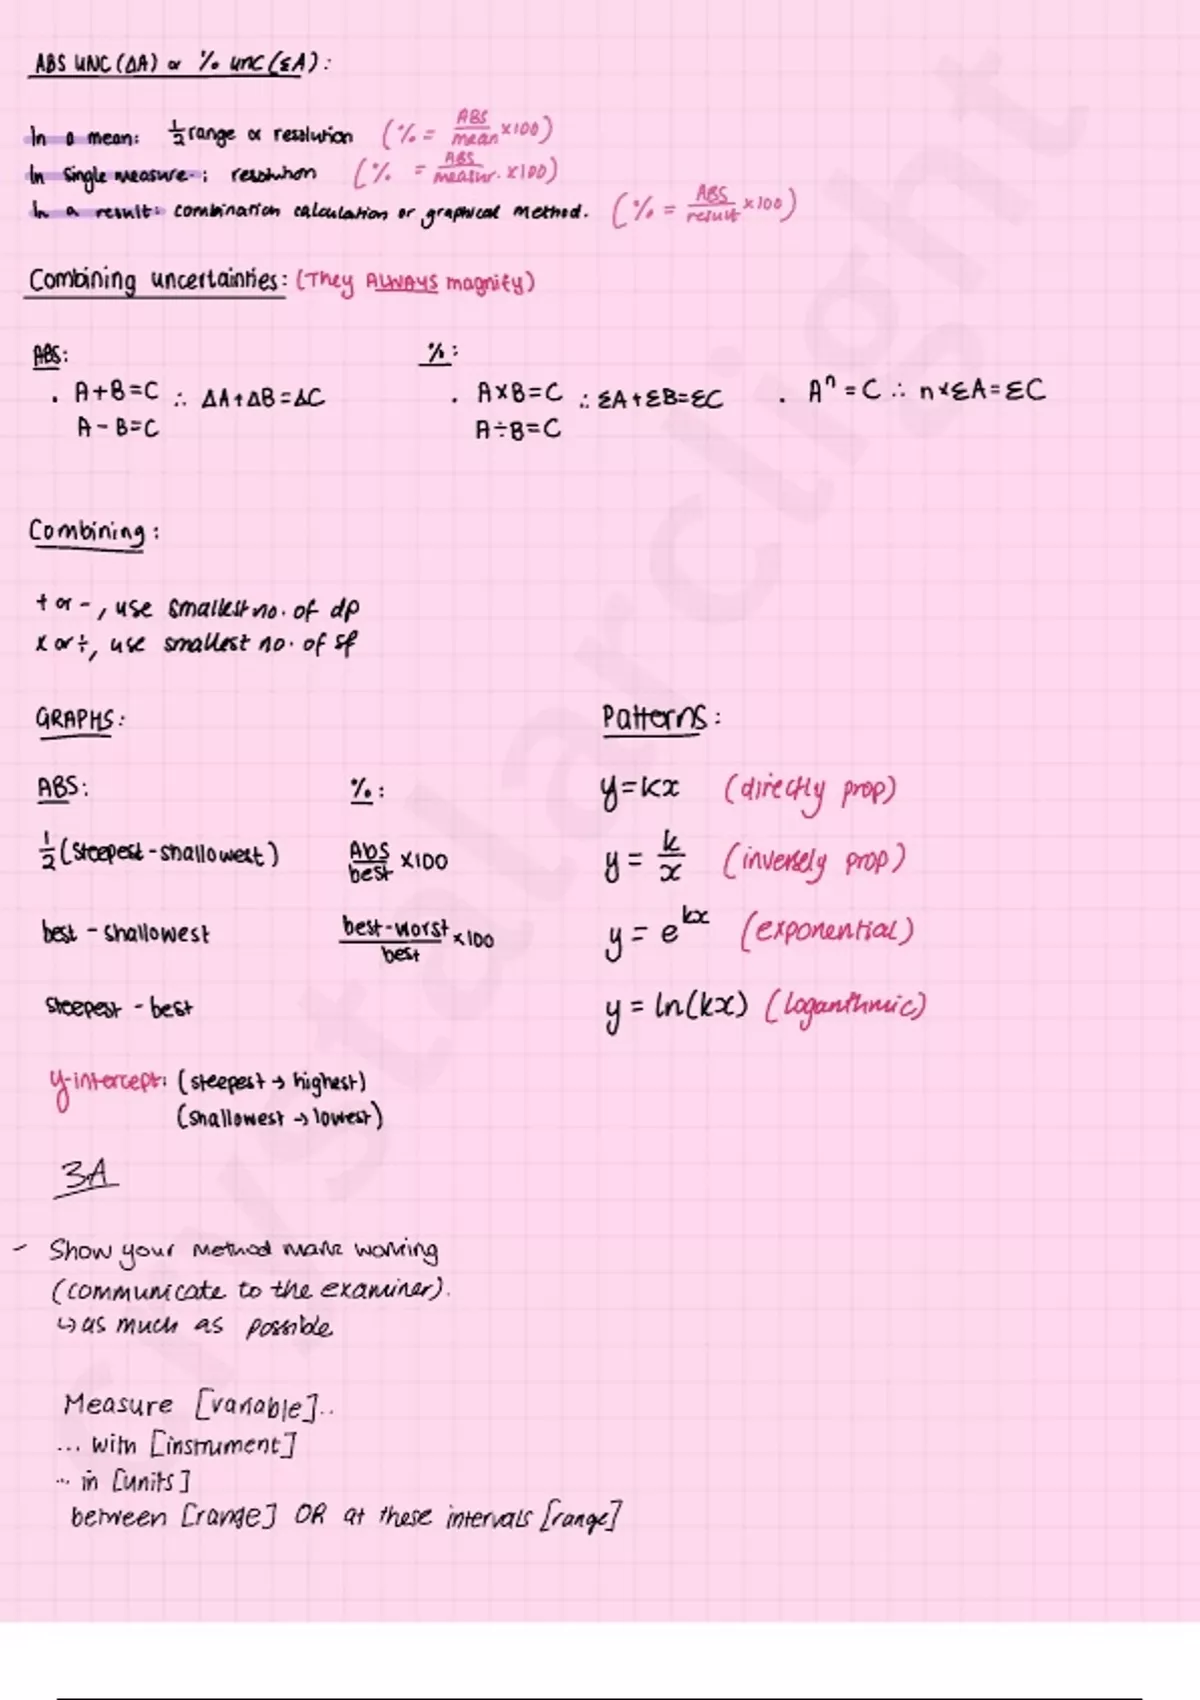 ABS UNC (ΔA) or % unc (εA):
In a mean: ½ range or resolution (% = ABS/mean ×100)
In single measure: resolution (% = ABS/measur. ×100)
In a result: combination calculation or graphical method. (% = ABS/result ×100)
Combining uncertainties: (They ALWAYS magnify)
ABS: %:
· A+B=C ∴ ΔA+ΔB=ΔC · A×B=C ∴ εA+εB=εC · Aⁿ=C ∴ n×εA=εC
A-B=C A÷B=C
Combining:
+ or -, use smallest no. of dp
× or ÷, use smallest no. of sf
GRAPHS: Patterns:
ABS: %: y=kx (directly prop)
½(steepest-shallowest) Abs/best ×100 y = k/x (inversely prop)
best - shallowest best-worst/best ×100 y = e^kx (exponential)
steepest - best y = ln(kx) (logarithmic)
y-intercept: (steepest → highest)
(shallowest → lowest)
3A
- Show your method mark working
(communicate to the examiner).
↳ as much as possible
Measure [variable]..
... with [instrument]
... in [units]
between [range] OR at these intervals [range]
crystalarclight